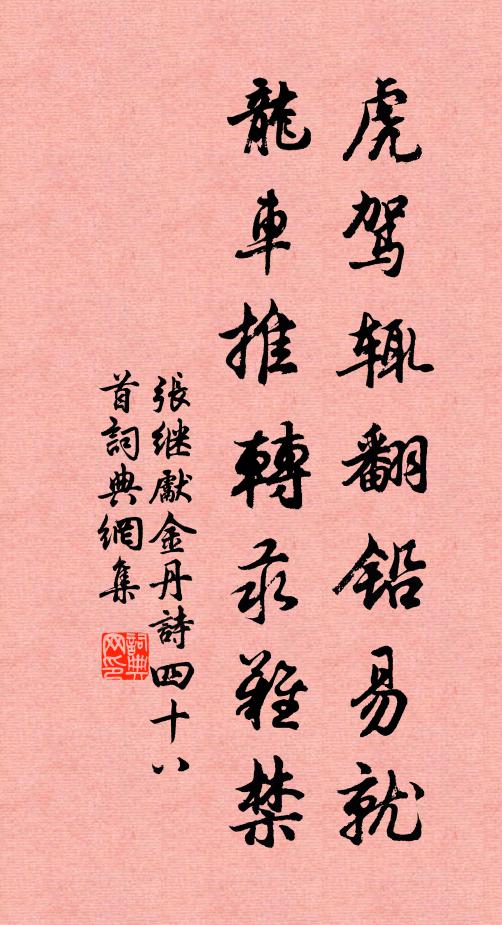 虎驾辄翻铅易就
龍車推轉汞難禁
張继獻金丹詩四十八
首詞典網集
詞典
网印